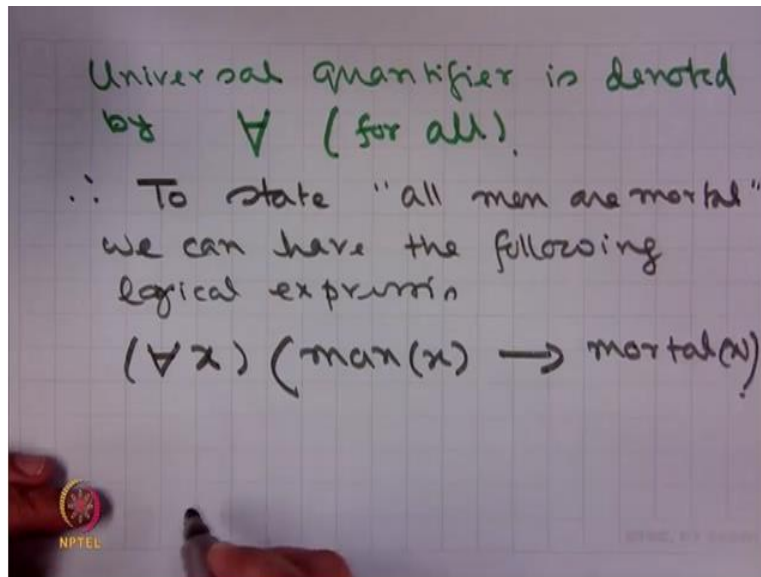 Universal quantifier is denoted
by ∀ (for all).
∴ To state "all men are mortal"
we can have the following
logical expression
(∀x) (man(x) → mortal(x)
NPTEL